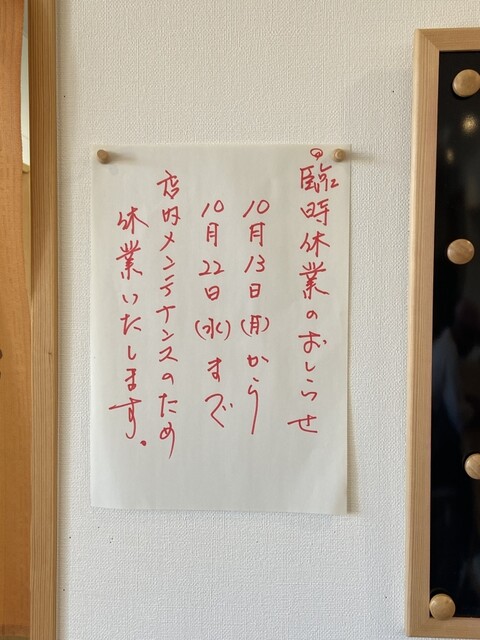 ◎臨時休業のおしらせ
10月13日(月)から
10月22日(水)まで
店内メンテナンスのため
休業いたします。